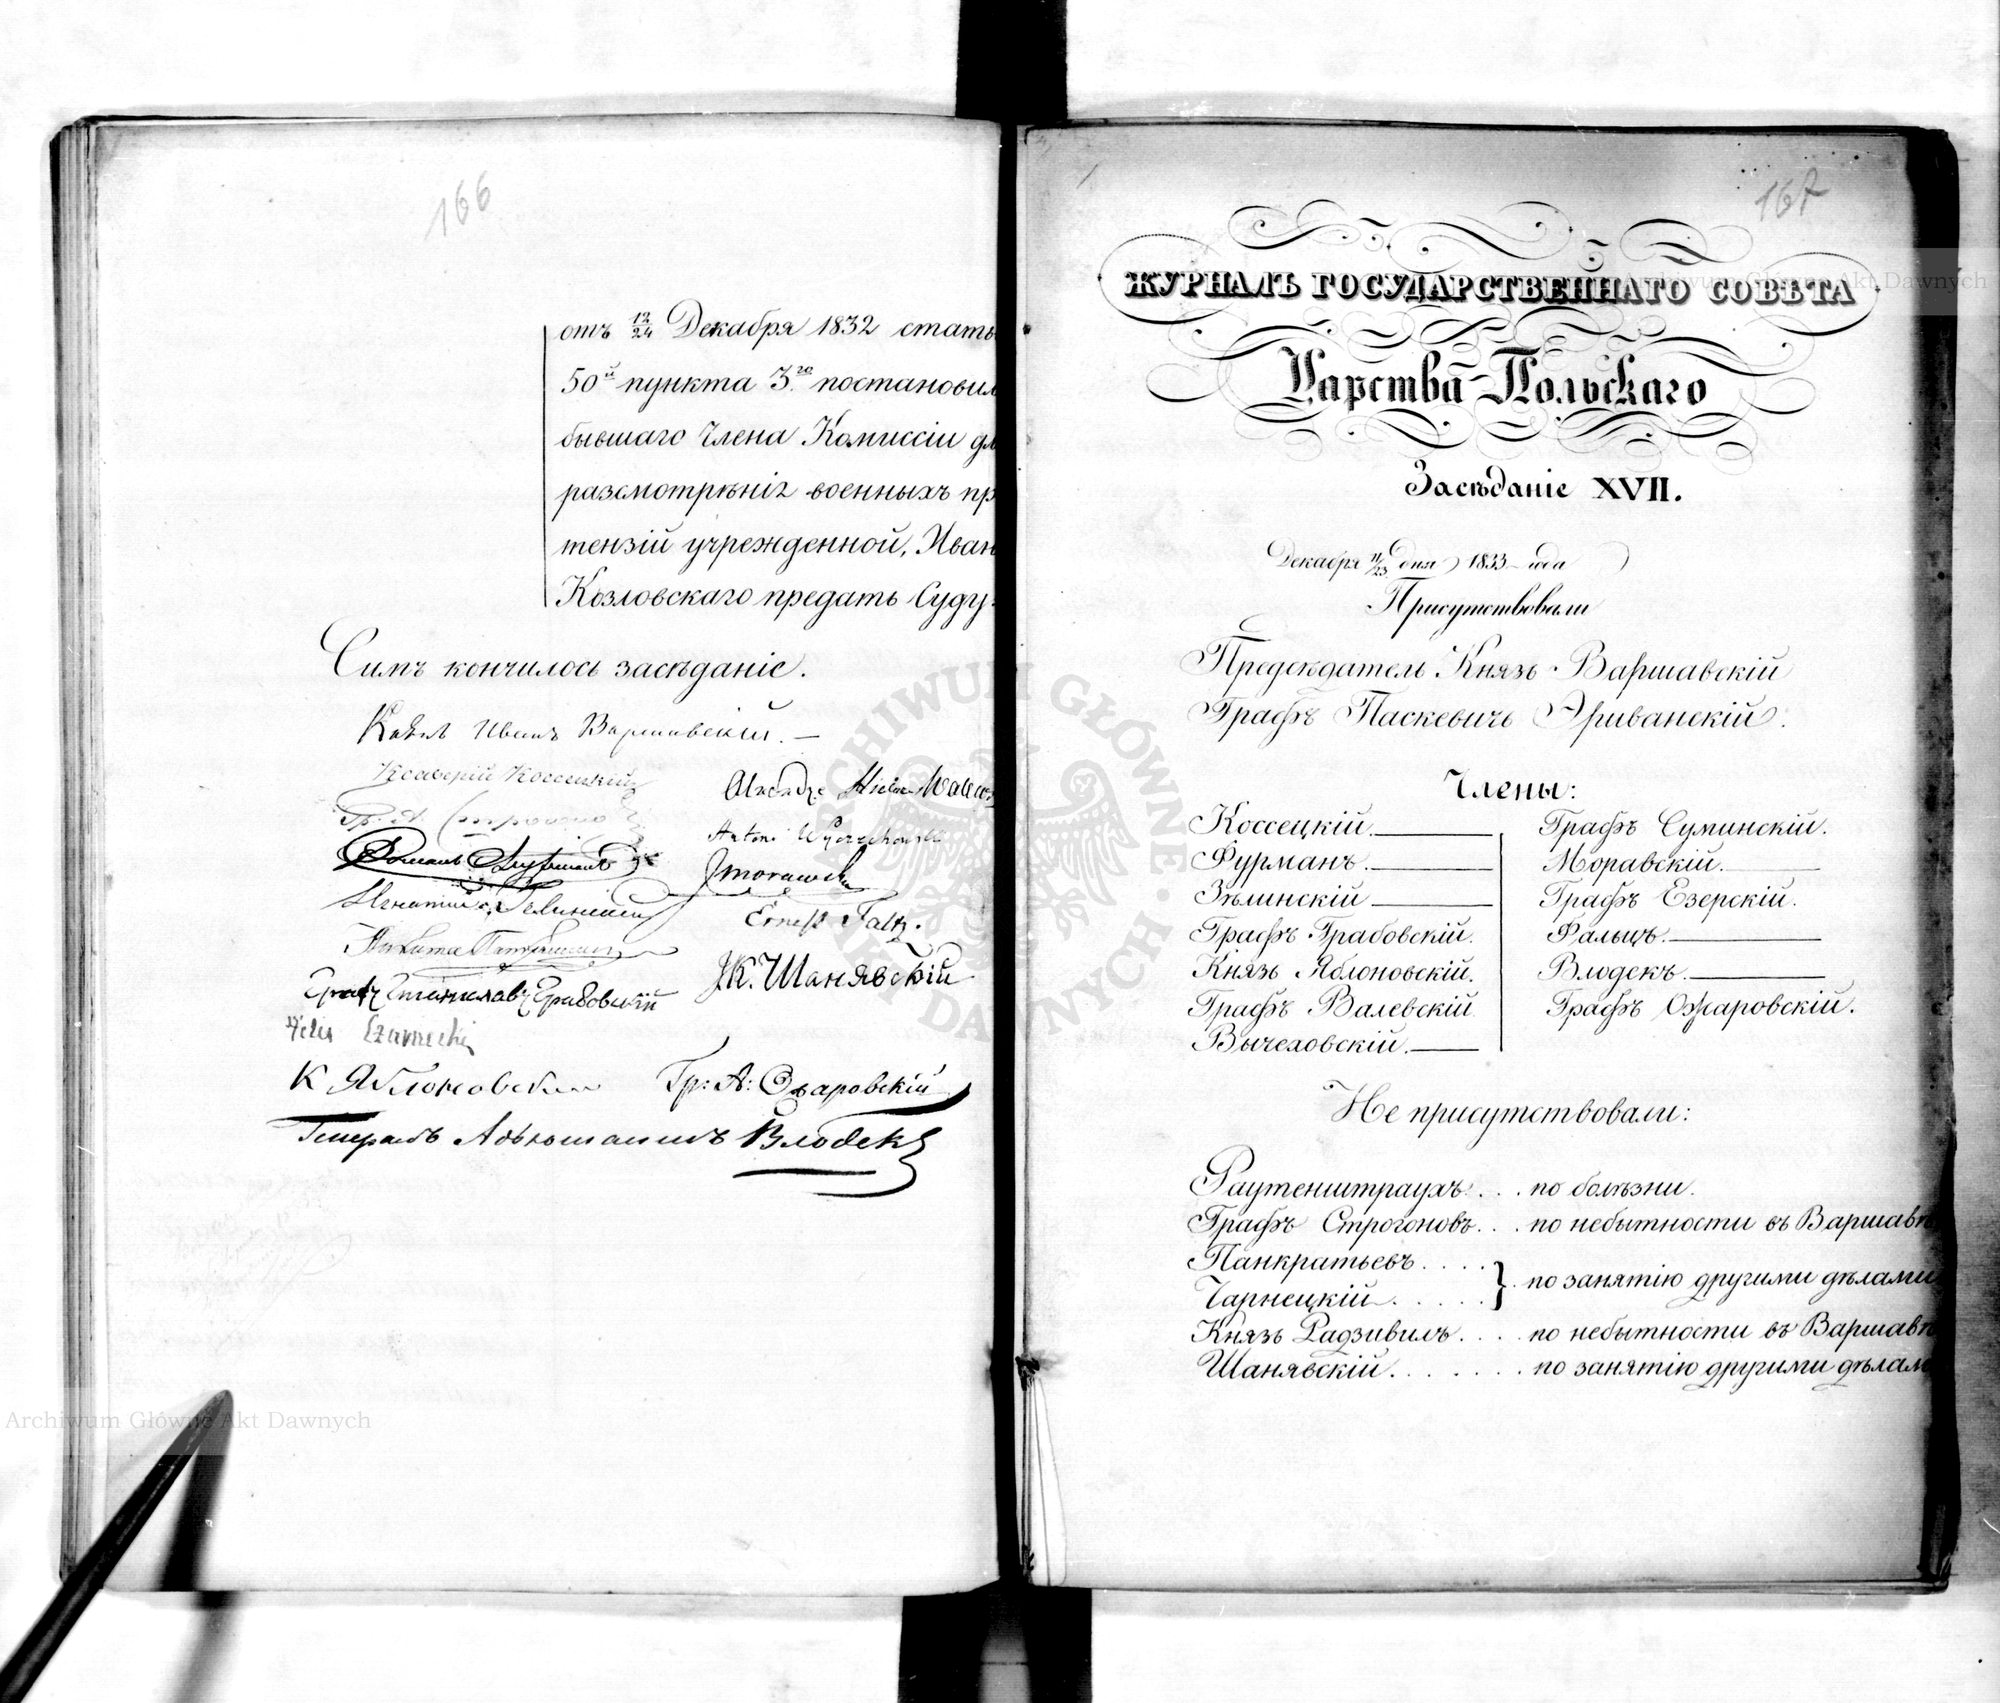 166
отъ 12/24 Декабря 1832 стать
50й пункта 3.го постановил
бывшаго Члена Комиссіи дл
разсмотрѣнія военныхъ пр
тензій учрежденной, Иван
Козловскаго предать Суду.
Симъ кончилось засѣданіе.
Князь Иванъ Варшавскій. —
Ксаверій Коссецкій
Antoni Wyczechowski
JMorawski
Ernest Faltz.
Графъ Станиславъ Грабовскій
JК. Шанявскій
К Яблоновскій
Гр: А: Ожаровскій
Генералъ Адъютантъ Влодекъ
167
ЖУРНАЛЪ ГОСУДАРСТВЕННАГО СОВѢТА
Царства Польскаго
Засѣданіе XVII.
Декабря 11/23 дня 1833 года
Присутствовали
Предсѣдатель Князь Варшавскій
Графъ Паскевичь Эриванскій.
Члены:
Коссецкій.
Фурманъ.
Зѣлинскій
Графъ Грабовскій.
Князь Яблоновскій.
Графъ Валевскій
Вычеховскій.
Графъ Суминскій.
Моравскій.
Графъ Езерскій.
Фальцъ.
Влодекъ.
Графъ Ожаровскій.
Не присутствовали:
Раутенштраухъ . . . по болѣзни.
Графъ Строгоновъ . . . по небытности въ Варшавѣ
Панкратьевъ . . . .
Чарнецкій . . . . . } по занятію другими дѣлами
Князь Радзивилъ . . . . по небытности въ Варшавѣ
Шанявскій . . . . . . . по занятію другими дѣлам
Archiwum Główne Akt Dawnych
Archiwum Główne Akt Dawnych
ARCHIWUM GŁÓWNE · AKT DAWNYCH ·